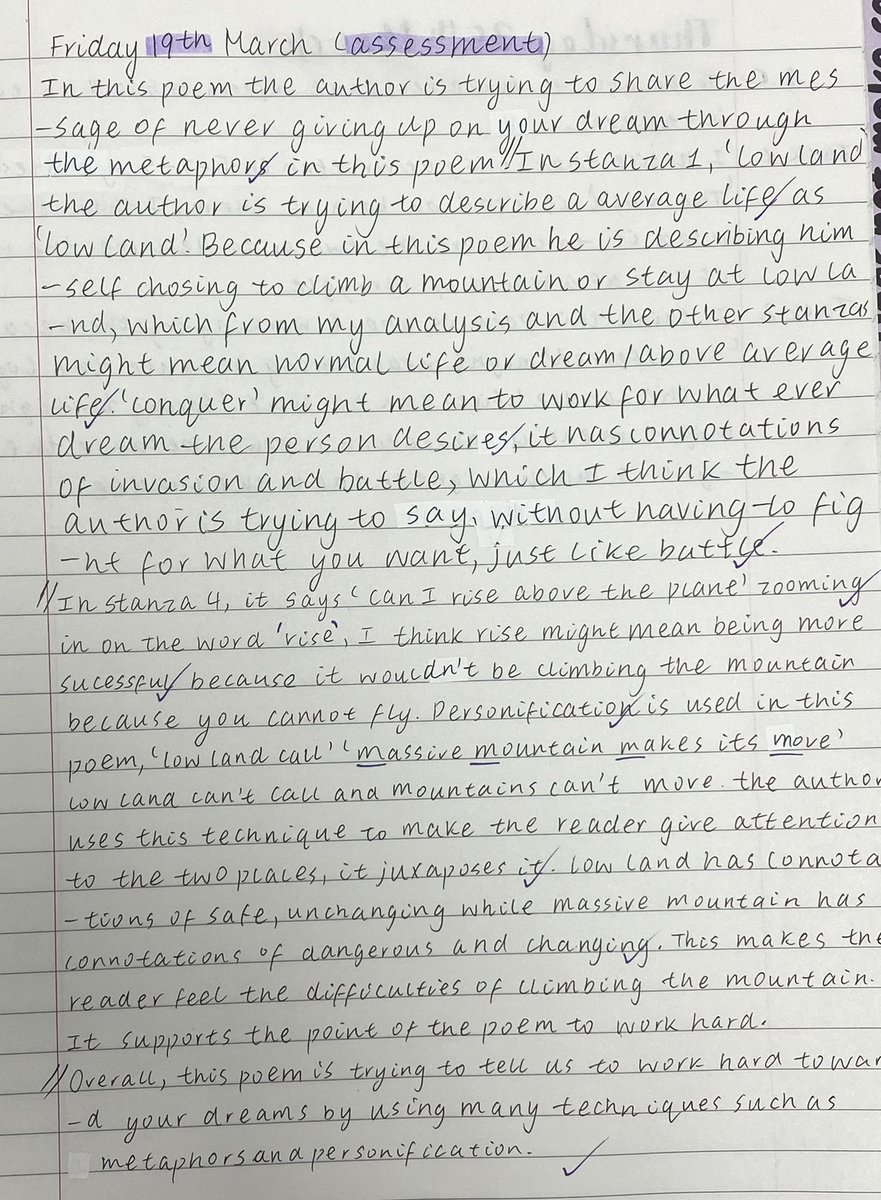 Friday 19th March (assessment)
In this poem the author is trying to share the mes
-sage of never giving up on your dream through
the metaphors in this poem. // In stanza 1, 'low land'
the author is trying to describe a average life as
'low land'. Because in this poem he is describing him
-self chosing to climb a mountain or stay at low la
-nd, which from my analysis and the other stanzas
might mean normal life or dream/above average
life. 'conquer' might mean to work for what ever
dream the person desires, it has connotations
of invasion and battle, which I think the
author is trying to say, without having to fig
-ht for what you want, just like battle.
// In stanza 4, it says 'can I rise above the plane' zooming
in on the word 'rise', I think rise might mean being more
sucessful because it wouldn't be climbing the mountain
because you cannot fly. Personification is used in this
poem, 'low land call' 'massive mountain makes its move'
low land can't call and mountains can't move. the author
uses this technique to make the reader give attention
to the two places, it juxaposes it. low land has connota
-tions of safe, unchanging while massive mountain has
connotations of dangerous and changing. This makes the
reader feel the difficulties of climbing the mountain.
It supports the point of the poem to work hard.
// Overall, this poem is trying to tell us to work hard towar
-d your dreams by using many techniques such as
metaphors and personification.